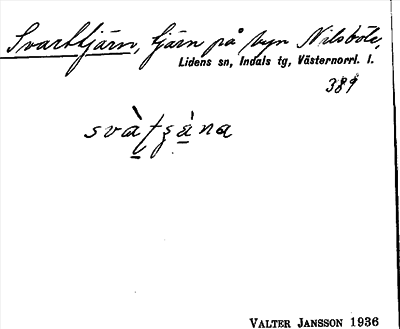 Svarttjärn, tjärn på byn Nilsböle,
Lidens sn, Indals tg, Västernorrl. l.
389
svàtʂàna
VALTER JANSSON 1936